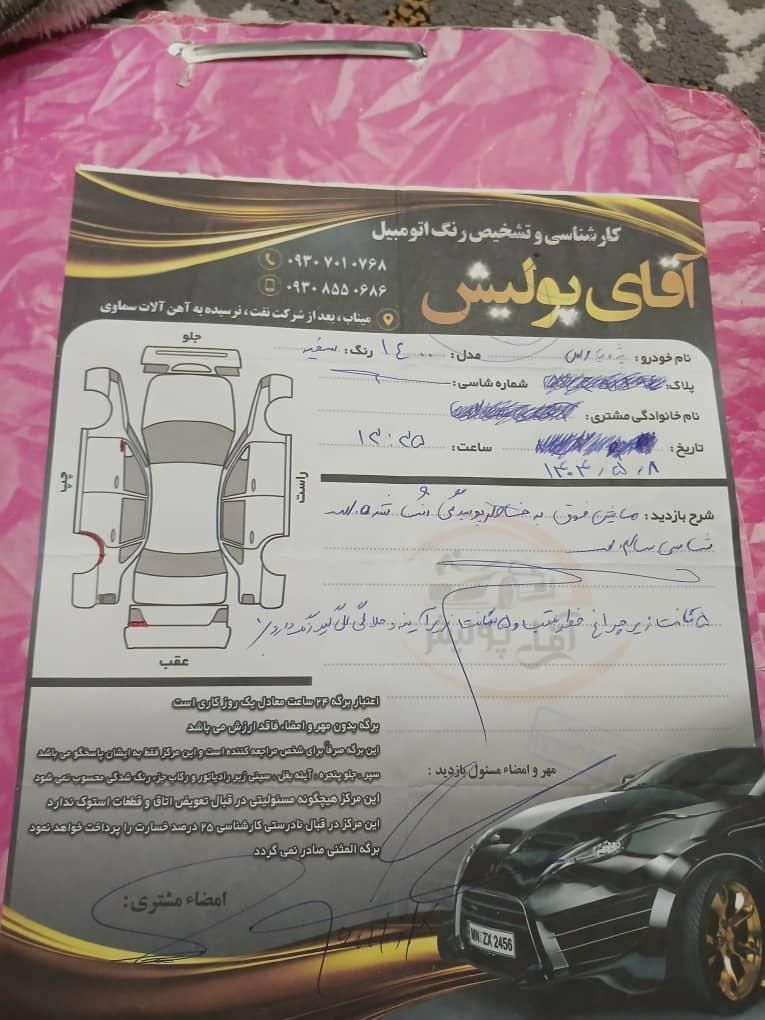 کارشناسی و تشخیص رنگ اتومبیل
آقای پولیش
۰۹۳۰ ۷۰۱ ۰۷۶۸
۰۹۳۰ ۸۵۵ ۰۶۸۶
میناب، بعد از شرکت نفت، نرسیده به آهن آلات سماوی
نام خودرو: پژو پارس مدل: ۱۴۰۰ رنگ: سفید
پلاک: شماره شاسی:
نام خانوادگی مشتری:
تاریخ: ساعت: ۱۲:۲۵
۱۴۰۴/۵/۸
جلو
چپ
راست
عقب
شرح بازدید: ماشین فوق به خاطر پوسیدگی شده است
شاسی سالم است
۵ سانت زیر چراغ خطر عقب و ۵ سانت زیر آینه و هلالی گلگیر رنگ دارد
اعتبار برگه ۲۴ ساعت معادل یک روز کاری است
برگه بدون مهر و امضاء فاقد ارزش می باشد
این برگه صرفاً برای شخص مراجعه کننده است و این مرکز فقط به ایشان پاسخگو می باشد
سپر، جلو پنجره، آینه بغل، سینی زیر رادیاتور و رکاب جزء رنگ شدگی محسوب نمی شود
این مرکز هیچگونه مسئولیتی در قبال تعویض اتاق و قطعات استوک ندارد
این مرکز در قبال نادرستی کارشناسی ۲۵ درصد خسارت را پرداخت خواهد نمود
برگه المثنی صادر نمی گردد
مهر و امضاء مسئول بازدید:
امضاء مشتری:
MN ZX 2456